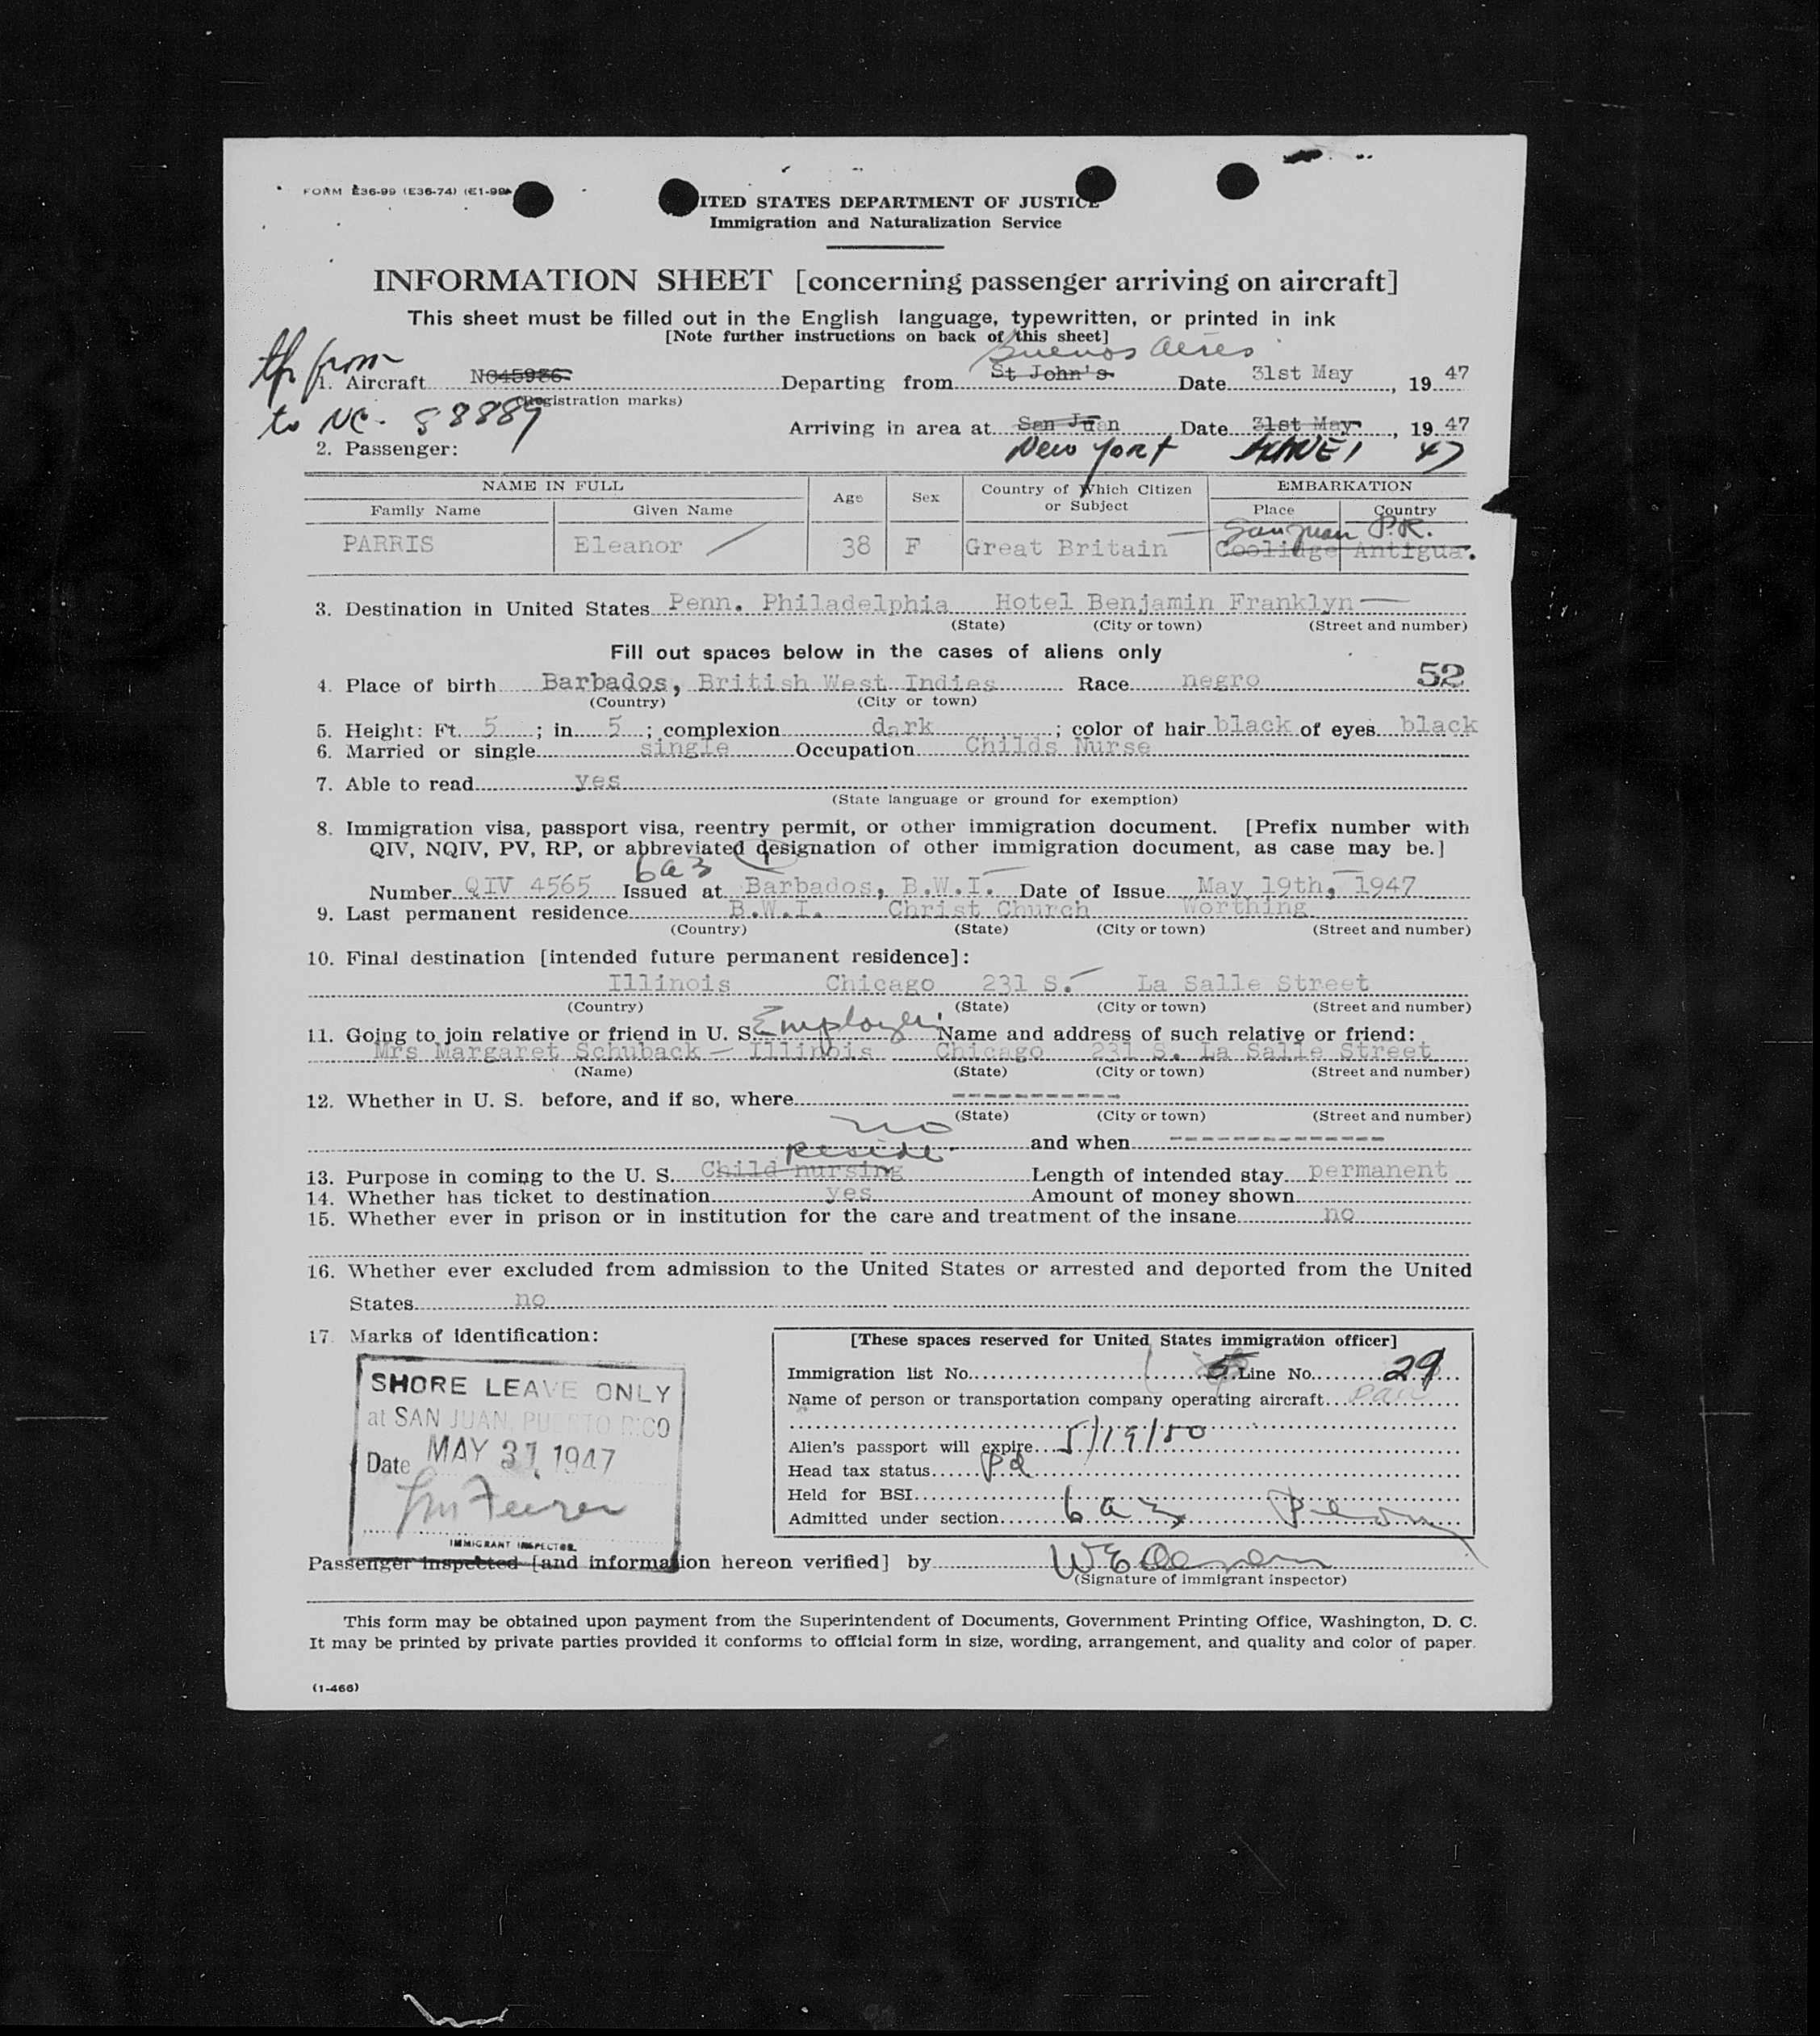 FORM E36-99 (E36-74) (E1-99
ITED STATES DEPARTMENT OF JUSTICE
Immigration and Naturalization Service
INFORMATION SHEET [concerning passenger arriving on aircraft]
This sheet must be filled out in the English language, typewritten, or printed in ink
[Note further instructions on back of this sheet]
from Buenos Aires
1. Aircraft Departing from St John's Date 31st May, 19 47
(Registration marks)
to NC. 88889 Arriving in area at San Juan Date 31st May, 19 47
2. Passenger: New York JUNE 1 47
NAME IN FULL Age Sex Country of Which Citizen or Subject EMBARKATION
Family Name Given Name Place Country
San Juan P.R.
PARRIS Eleanor 38 F Great Britain Coolidge Antigua.
3. Destination in United States Penn. Philadelphia Hotel Benjamin Franklyn
(State) (City or town) (Street and number)
Fill out spaces below in the cases of aliens only
4. Place of birth Barbados, British West Indies Race negro 52
(Country) (City or town)
5. Height: Ft. 5 ; in. 5 ; complexion dark ; color of hair black of eyes black
6. Married or single single Occupation Childs Nurse
7. Able to read yes
(State language or ground for exemption)
8. Immigration visa, passport visa, reentry permit, or other immigration document. [Prefix number with
QIV, NQIV, PV, RP, or abbreviated designation of other immigration document, as case may be.]
6a3
Number QIV 4565 Issued at Barbados, B.W.I. Date of Issue May 19th, 1947
9. Last permanent residence B.W.I. Christ Church Worthing
(Country) (State) (City or town) (Street and number)
10. Final destination [intended future permanent residence]:
Illinois Chicago 231 S. La Salle Street
(Country) (State) (City or town) (Street and number)
11. Going to join relative or friend in U. S. Employer Name and address of such relative or friend:
Mrs Margaret Schuback - Illinois Chicago 231 S. La Salle Street
(Name) (State) (City or town) (Street and number)
12. Whether in U. S. before, and if so, where ------------
(State) (City or town) (Street and number)
no and when --------------
Reside
13. Purpose in coming to the U. S. Child nursing Length of intended stay permanent
14. Whether has ticket to destination yes Amount of money shown
15. Whether ever in prison or in institution for the care and treatment of the insane no
16. Whether ever excluded from admission to the United States or arrested and deported from the United
States no
17. Marks of identification:
SHORE LEAVE ONLY
at SAN JUAN, PUERTO RICO
Date MAY 31 1947
IMMIGRANT INSPECTOR
[These spaces reserved for United States immigration officer]
Immigration list No. 5 Line No. 29
Name of person or transportation company operating aircraft
Alien's passport will expire 5/19/50
Head tax status Pd
Held for BSI
Admitted under section 6 a 3
Passenger inspected [and information hereon verified] by
(Signature of immigrant inspector)
This form may be obtained upon payment from the Superintendent of Documents, Government Printing Office, Washington, D. C.
It may be printed by private parties provided it conforms to official form in size, wording, arrangement, and quality and color of paper.
(1-466)